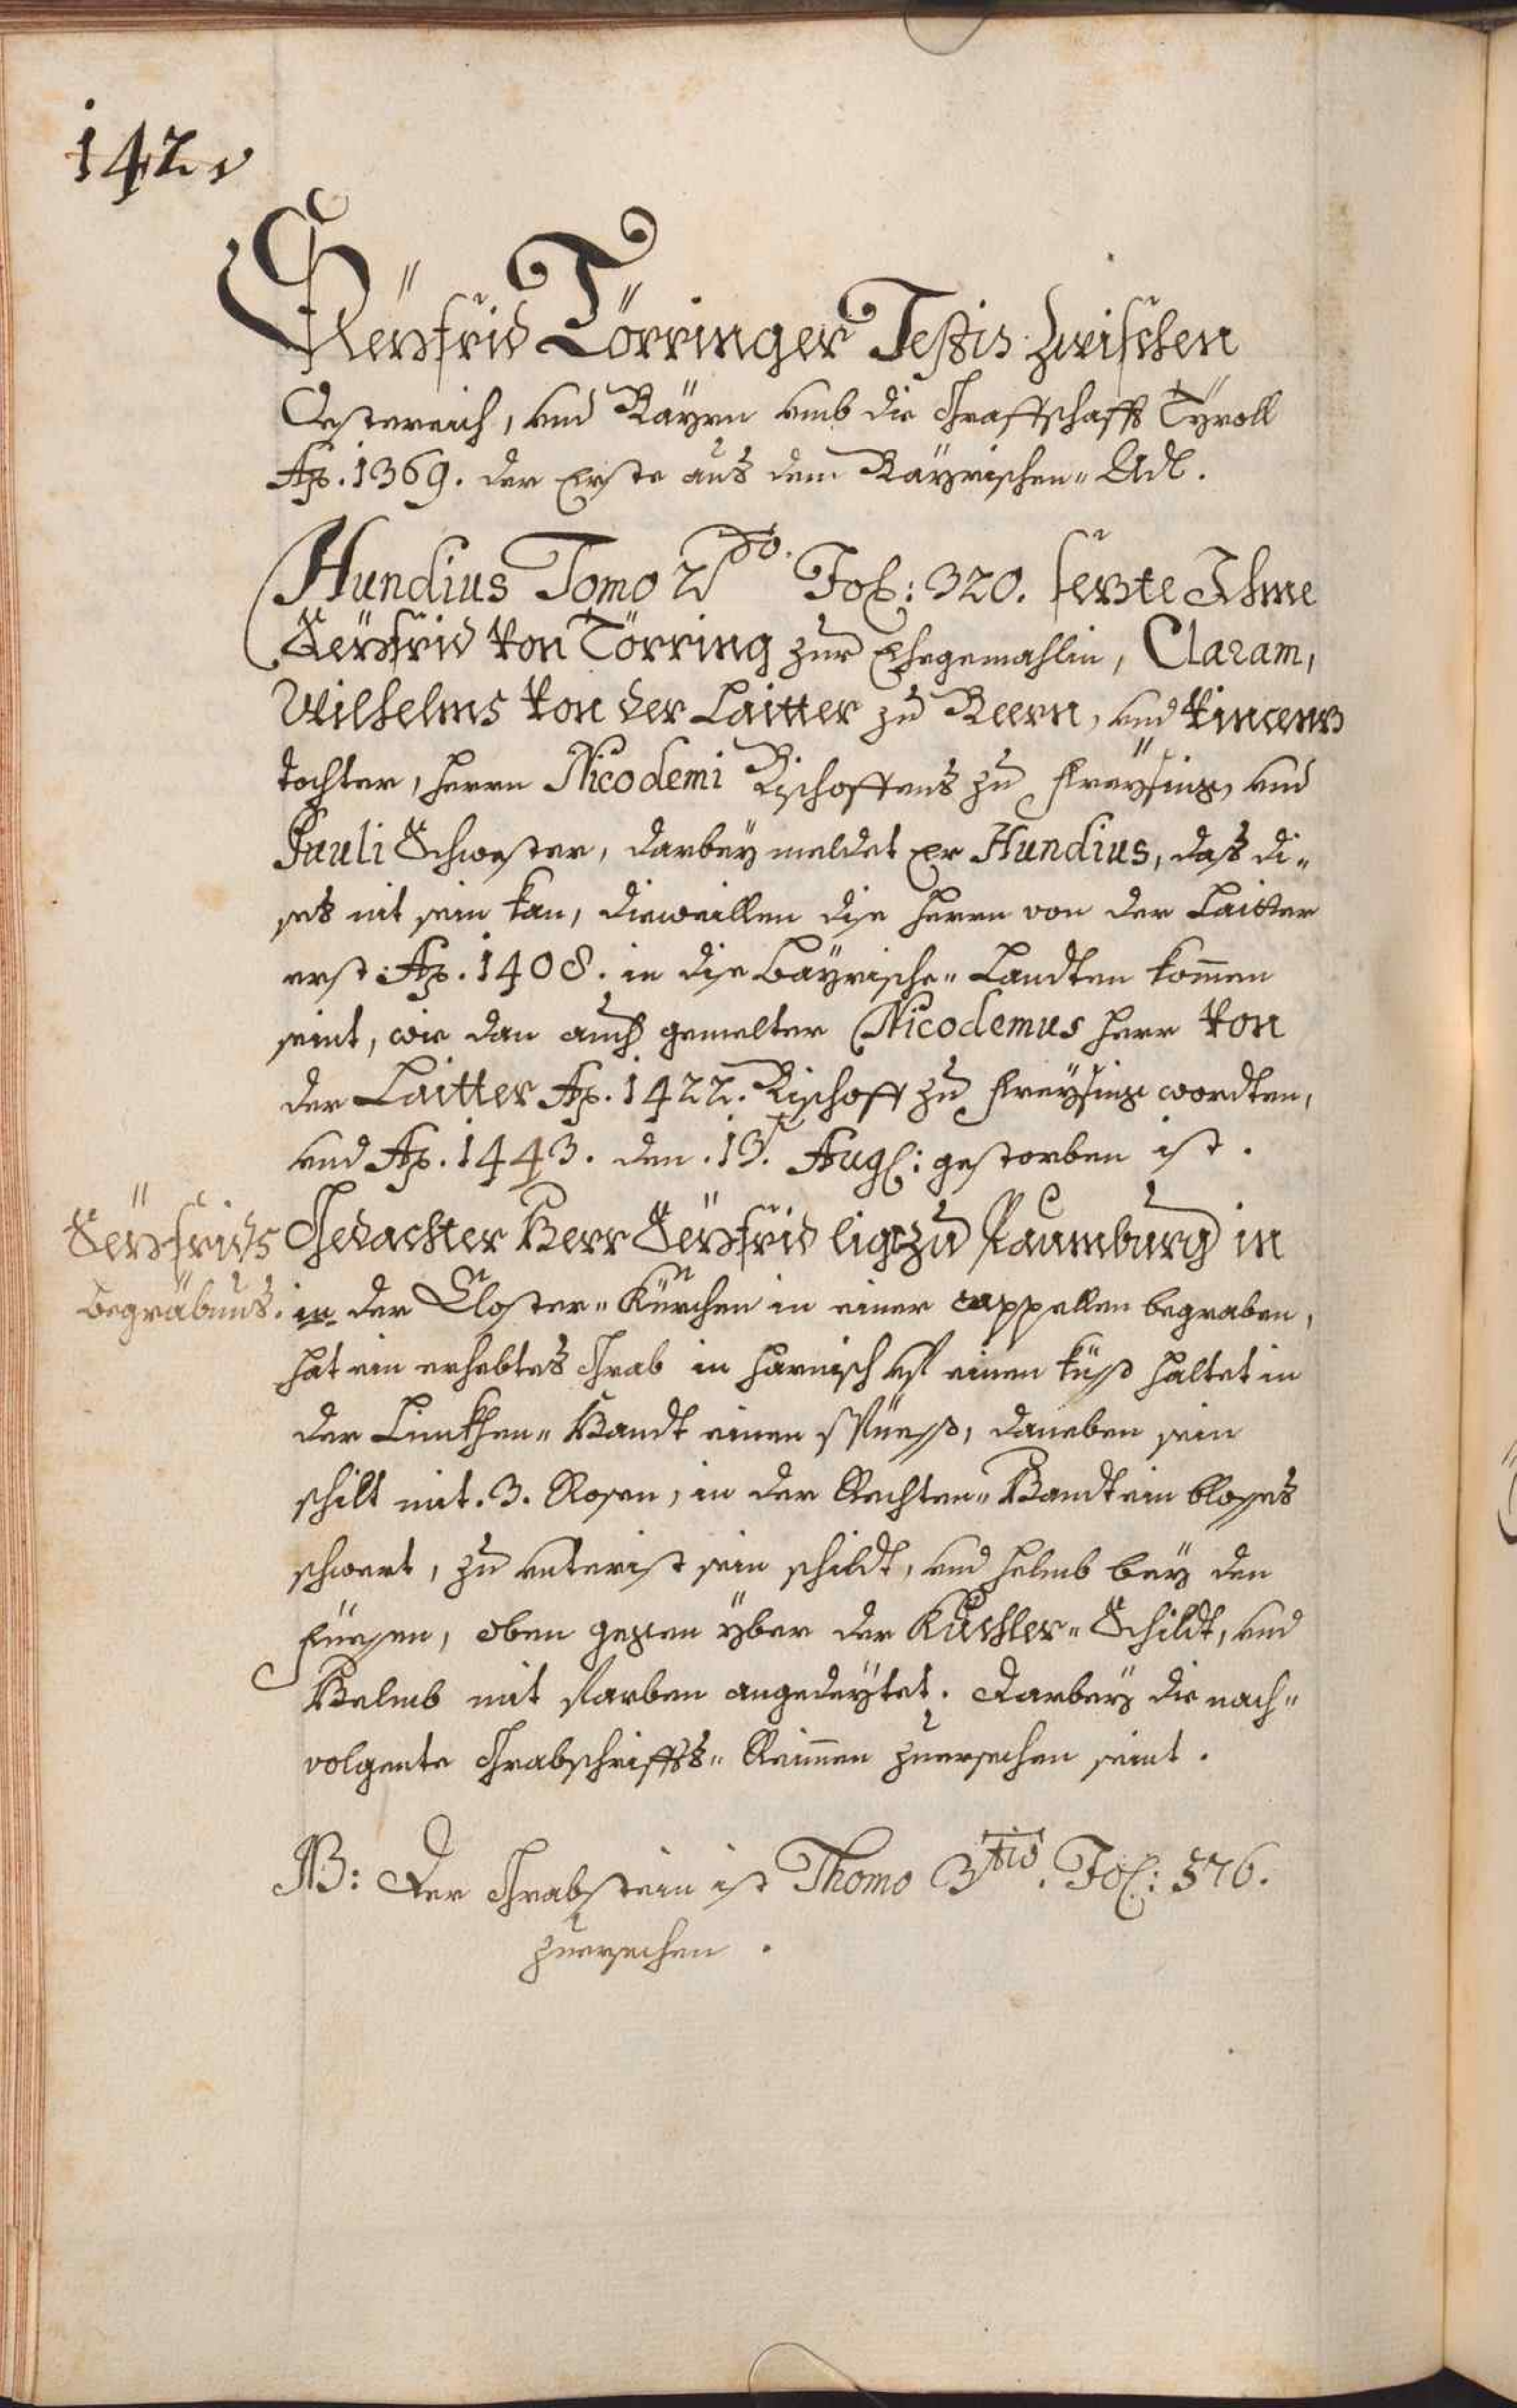 142 v
Seyfrid Törringer Testis zwischen
Östereich, und Bayrn umb die Graffschafft Tyroll
Ao. 1369. der Erste aus dem Bäyrischen Adl.
Hundius Tomo 2do. Fol: 320. sezte Ihme
Seyfrid von Törring zur Ehegemahlin, Claram,
Wilhelms von der Laitter zu Beern, und Vincenz
tochter, herrn Nicodemi Bischoffens zu Freysing, und
Pauli Schwester, darbey meldet Er Hundius, daß di„
ses nit sein kan, dieweillen dise herrn von der Laitter
erst Ao. 1408. in dise Bäyrische„ Landten kommen
seint, wie dan auch gemelter Nicodemus herr von
der Laitter Ao. 1422. Bischoff zu Freysing wordten,
und Ao. 1443. den. 13t. Aug: gestorben ist.
Seyfrids
begräbnus.
Gedachter Herr Seyfrid ligt zu Baumburg in
in der Closter„ Kürchen in einer cappellen begraben,
hat ein erhebtes Grab in harnisch uf einen küss haltet in
der Linkhen„ Handt einen Spiess, daneben sein
schilt mit. 3. Rosen, in der Rechten„ Handt ein blosses
schwert, zu unterist sein schildt, und helmb bey den
füessen, oben gegen yber der Kuchler„ Schildt, und
Helmb mit Farben angedeytet. Darbey die nach„
volgente Grabschriffts„ Reimmen zuersechen seint.
NB: Der Grabstein ist Thomo 3tio. Fol: 576.
zuersechen.